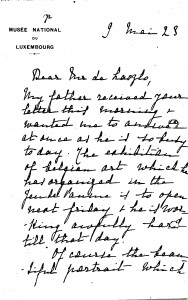 MUSÉE NATIONAL
DU
LUXEMBOURG
9 Mai 23
Dear Mr de Laszlo,
My father received your
letter this morning &
wanted me to answer
at once as he is so busy
to day. The exhibition
of Belgian art which he
has organised in the
Jeu de Paume is to open
next friday & he is wor
king awfully hard
till that day.
Of course the beau
tiful portrait which